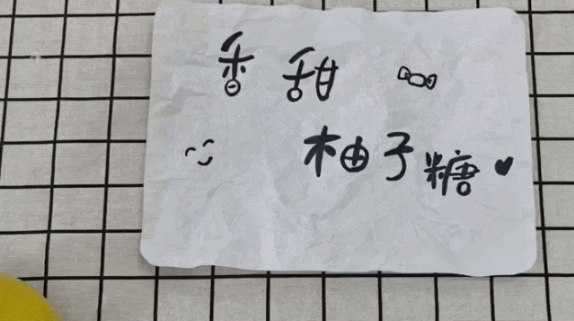 香甜
柚子糖